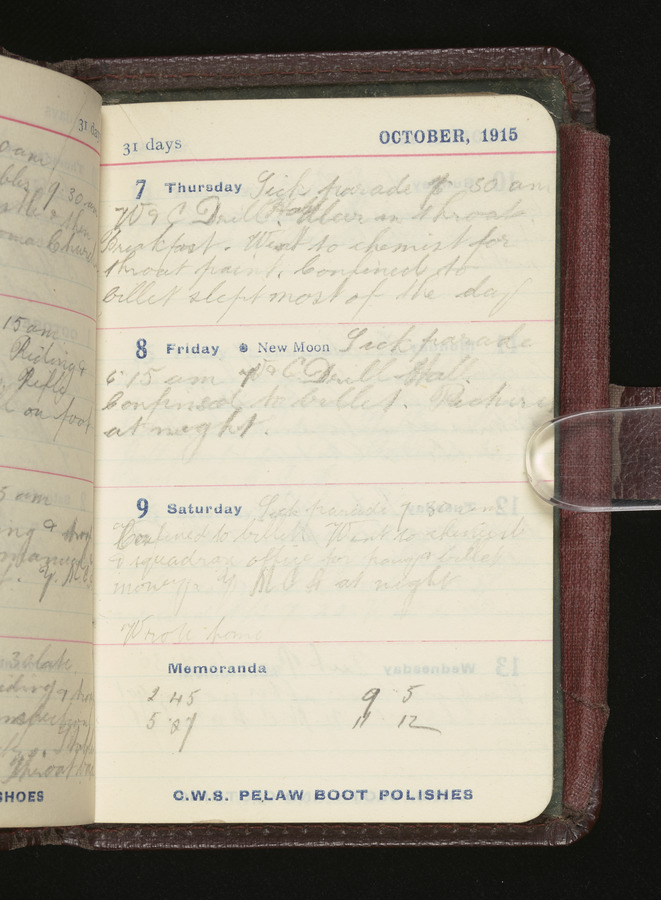 31 da
0 am
9.30 am
& then
Church
15 am
Riding &
Rifle
on foot
5 am
ing &
Y.M.C
late
iding &
Throat
SHOES
31 days OCTOBER, 1915
7 Thursday Sick parade 30 am
W & C Drill Hall. Ulcer in throat.
Breakfast. Went to chemist for
throat paint. Confined to
billet slept most of the day
8 Friday New Moon Sick parade
6.15 am W & C Drill Hall.
Confined to billet. Pictures
at night.
9 Saturday Sick parade 7.30 am
Confined to billet. Went to chemist
& squadron office for pay & billet
money. Y M C A at night
Wrote home
Memoranda
2 45 9 5
5 27 11 12
C.W.S. PELAW BOOT POLISHES